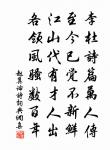 李杜詩篇萬人傳
至今已覺不新鮮
江山代有才人出
各領風騷數百年
趙翼論詩詞典網集